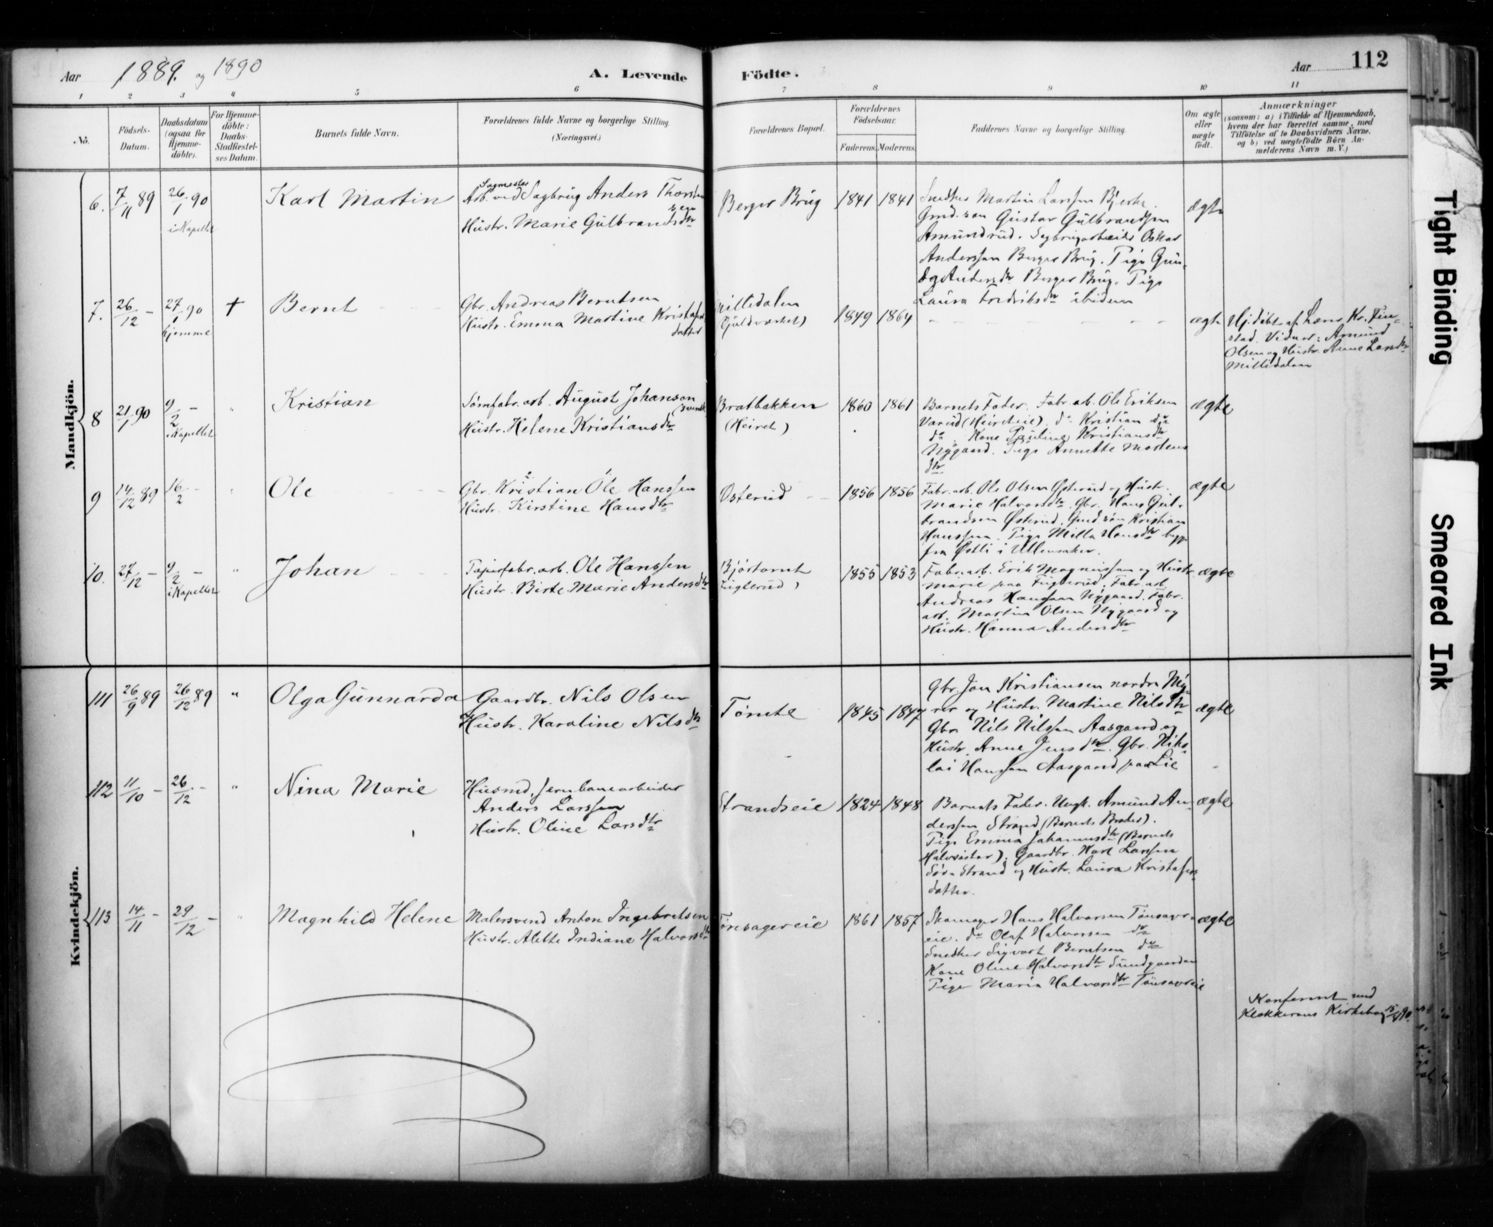 Aar 1889. og 1890
A. Levende Födte.
Aar 112
1 2 3 4 5 6 7 8 9 10 11
No.
Födsels-
Datum.
Daabsdatum
(ogsaa for
Hjemme-
döbte).
For Hjemme-
döbte:
Daabs-
Stadfæstel-
ses Datum.
Barnets fulde Navn.
Forældrenes fulde Navne og borgerlige Stilling.
(Næringsvei.)
Forældrenes Bopæl.
Forældrenes
Födselsaar.
Faderens. Moderens.
Faddernes Navne og borgerlig Stilling.
Om ægte
eller
uægte
födt.
Anmærkninger
(saasom: a) i Tilfælde af Hjemmedaab,
hvem der har forrettet samme, med
Tilföielse af to Daabsvidners Navne,
og b) ved uægtefödte Börn An-
melderens Navn m. V.)
Mandkjön.
6. 7/11 89 26/1 90
i Kapellet
Karl Martin
Sagmester
Arb. ved Sagbrug Anders
Hustr. Marie Gulbrandsdtr
Berger Brug
1841 1841
Snedker Martin Larsen Bjerke.
Gmd.søn Gustav Gulbrandsen
Amundrud. Sagbrugarbeider Oskar
Anderssen Berger Brug. Pige
Andersdtr Berger Brug. Pige
Laura Fredriksdtr ibidem
ægte
7. 26/12 – 27/1 90
hjemme
†
Bernt
Gbr. Andreas Berntsen
Hustr. Emma Martine Kristofer
datter
Millidalen
(Guldværket)
1849 1864
– – – – – –
ægte
Hj. döbt af Lærer Kr.
Vidner: Amund
Olsen og Hustr. Anne Larsdtr
Millidalen
8 21/1 90 9/2 –
i Kapellet
"
Kristian
August Johanson
(svensk)
Hustr. Helene Kristiansdtr
Bratbakken
1860 1861
Barnets Fader. Fabr. arb. Ole Eriksen
do Kristian do
do Kone Kristiansdtr
Nygaard. Pige Annette Mortens
dtr
ægte
9 14/12 89 16/2 –
"
Ole
2 1
Gbr. Kristian Ole Hanssen
Hustr. Kirstine Hansdtr
Østerud
1856 1856
Fabr. arb. Ole Olsen Østerud og Hustr.
Marie Halvorsdtr. Gbr. Hans Gul-
brandsen Østerud. Gmd søn Kristian
Hanssen. Pige Milla Hansdtr
fra Østli i Ullensaker.
ægte
10. 27/12 – 9/2 –
i Kapellet
"
Johan
Papirfabr. arb. Ole Hanssen
Hustr. Birte Marie Andersdtr
Bjørtomt
1855 1853
Fabr. arb. Erik Magnussen og Hustr.
Marie paa Fuglerud. Fabr. arb.
Andreas Hanssen Nygaard. Fabr.
arb. Martin Olsen Nygaard og
Hustr. Hanna Andersdtr
ægte
Kvindekjön.
111 26/9 89 26/12 89
"
Olga Gunnarda
Gaardbr. Nils Olsen
Hustr. Karoline Nilsdtr
Tømte
1845 1847
Gbr. Jon Kristiansen nordre My-
rer og Hustr. Martine Nilsdtr
Gbr. Nils Nilsen Aasgaard og
Hustr. Anne Jensdtr. Gbr. Niko-
lai Hanssen Aasgaard paa Lie
ægte
112 11/10 – 26/12 –
"
Nina Marie
Husmd, Jernbanearbeider
Anders Larssen
Hustr. Oline Larsdtr
Strandseie
1824 1848
Barnets Fader. Ungk. Amund An-
derssen Strand (Barnets Broder).
Pige Emma Johannesdtr (Barnets
Halvsøster). Gaardbr. Karl Larssen
Søre Strand og Hustr. Laura Kristofers
datter.
ægte
113 14/11 – 29/12 –
"
Magnhild Helene
Malersvend Anton Ingebretsen
Hustr. Alette Indiane Halvorsdtr
Tønsagereie
1861 1857
Skomager Hans Halvorsen Tønsager-
eie. do Olaf Halvorsen do
Snedker Sigvart Berntsen do
Kone Oline Halvorsdtr Sundgaarden
Pige Maria Halvorsdtr
ægte
Konferert med
Klokkerens Kirkebog
Tight Binding
Smeared Ink